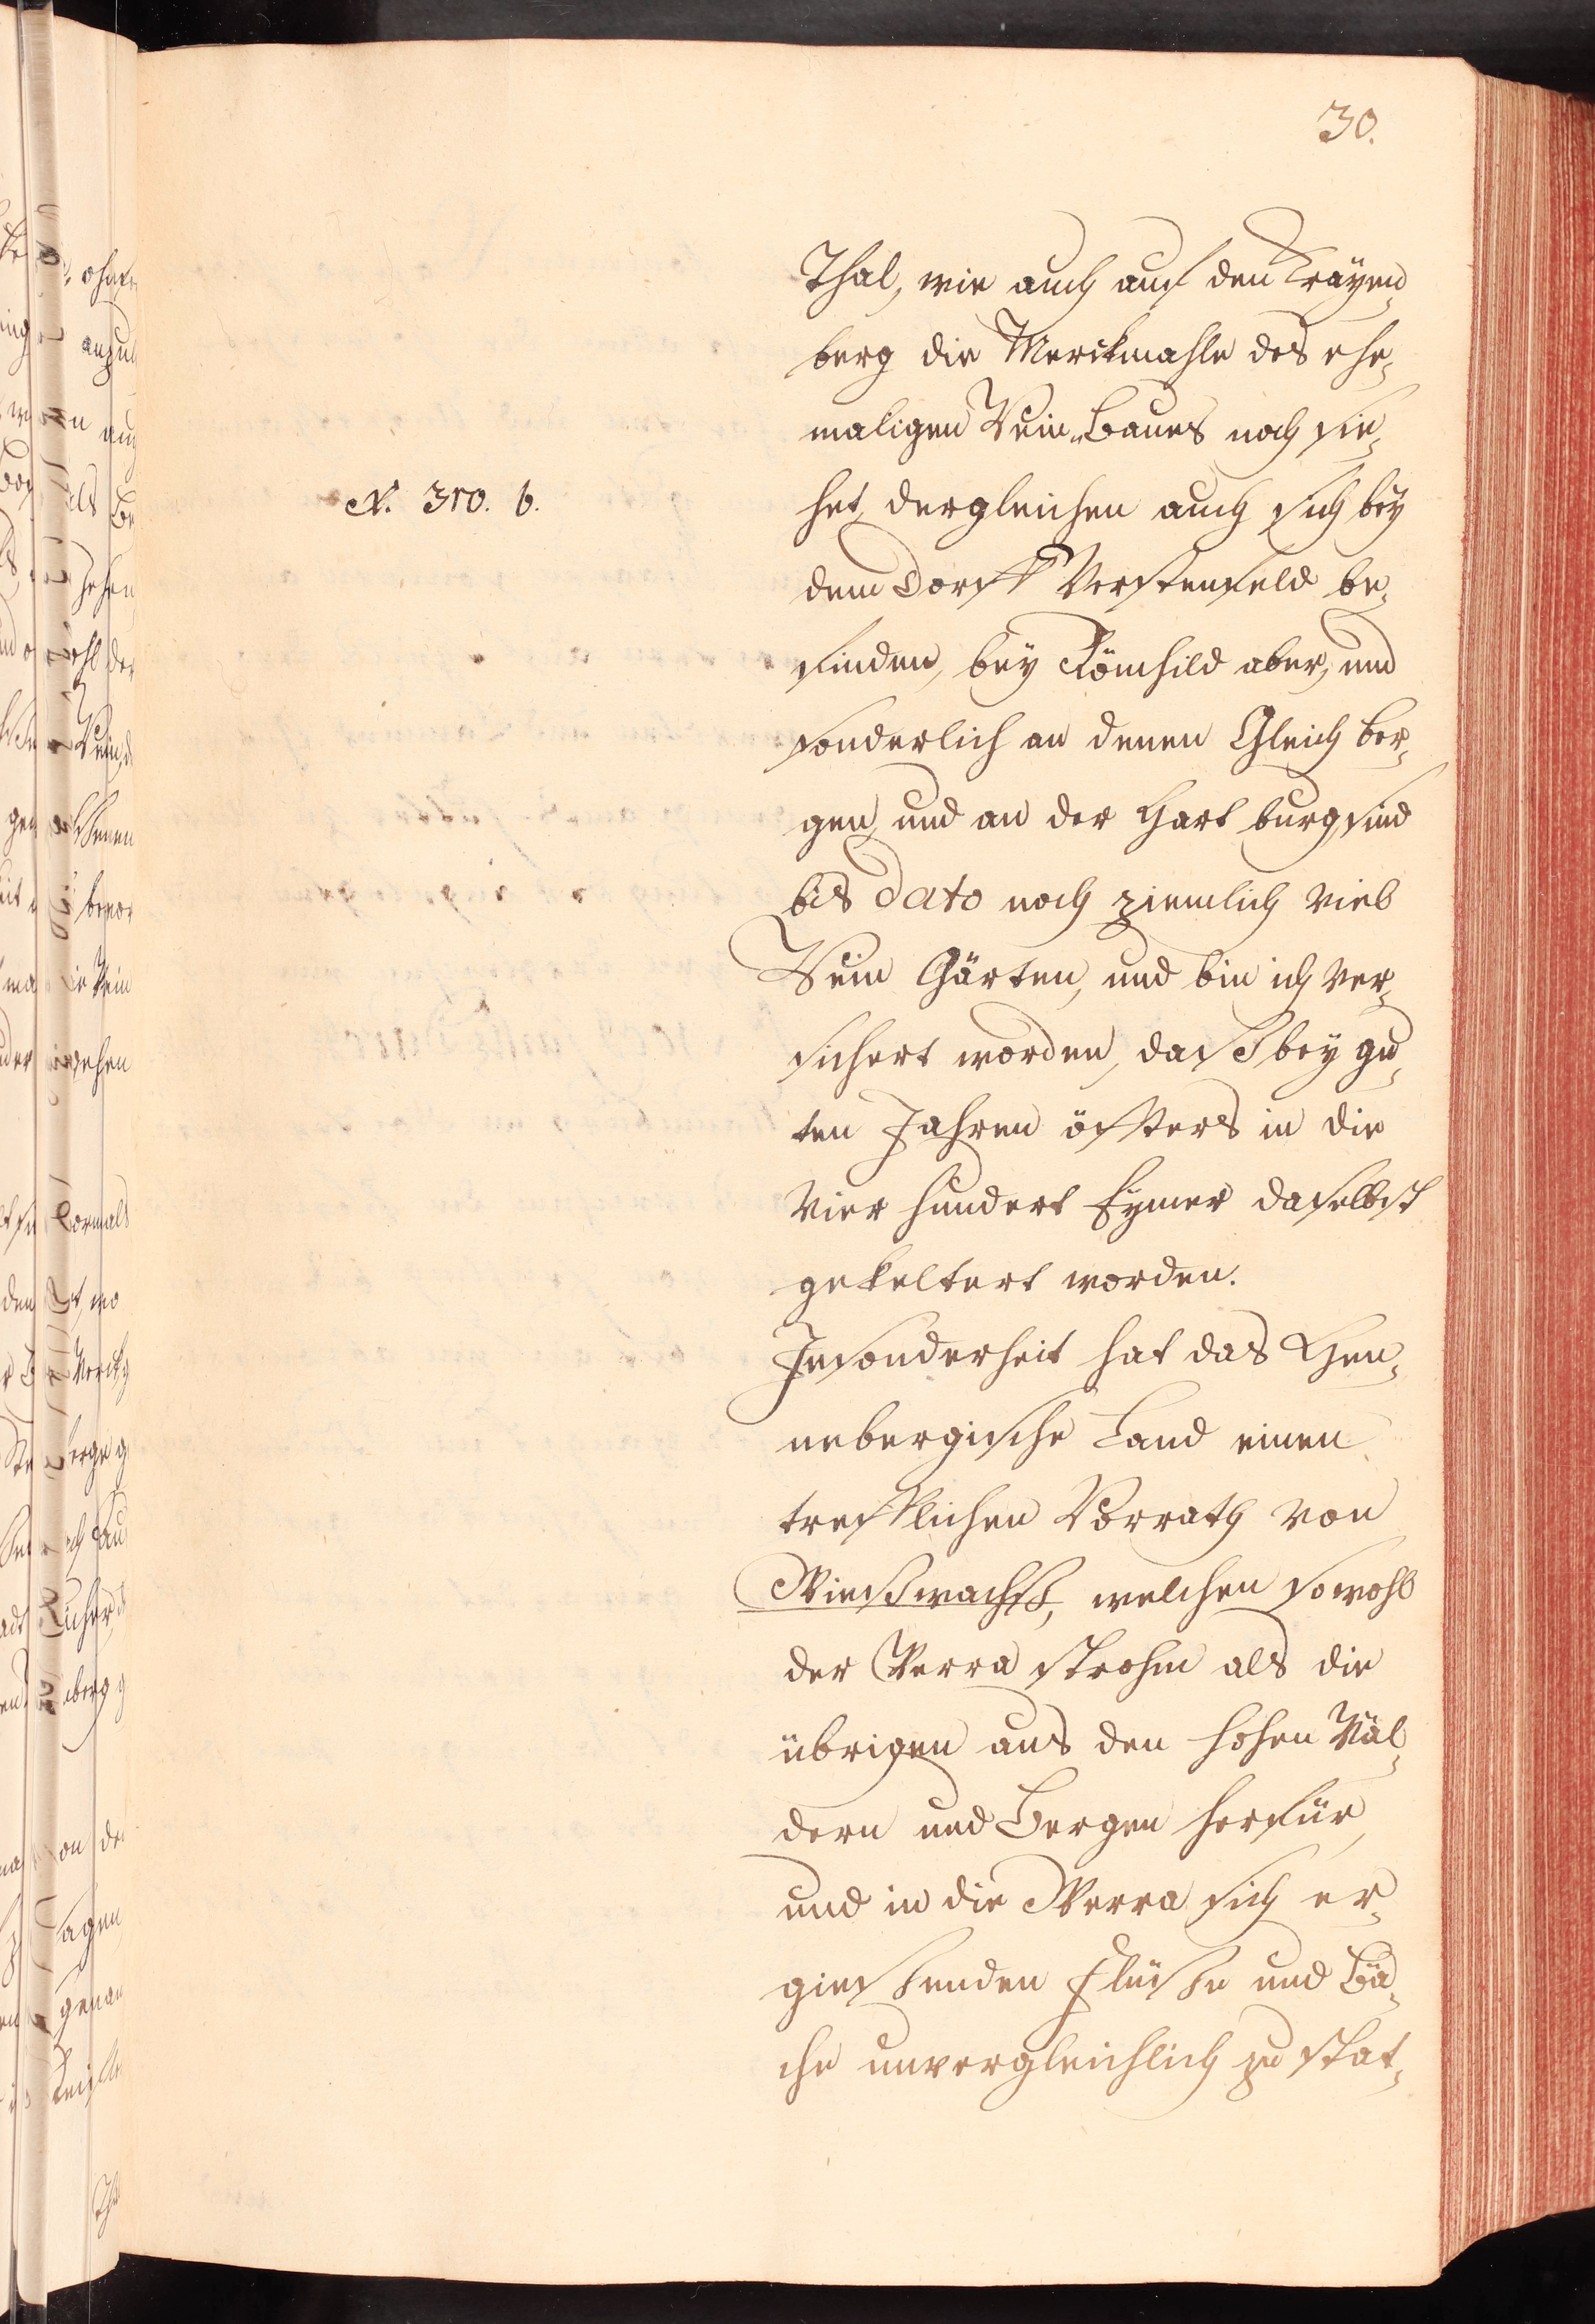 30.
Thal, wie auch auf den Krayen¬
berg die Merckmahle des ehe¬
maligen Wein-Baues noch sie¬
N. 310. b.
het, dergleichen auch sich bey
dem Dorff Verstenfeld be¬
finden, bey Römhild aber, und
sonderlich an denen Gleich ber¬
gen, und an der Hart burg sind
bis dato noch ziemlich viel
Wein Gärten, und bin ich ver¬
sichert worden, daß bey gu¬
ten Jahren öffters in die
vier hundert Eymer daselbst
gekeltert worden.
Insonderheit hat das Hen¬
nebergische Land einen
trefflichen Vorrath von
Wießwachß, welchen sowohl
der Werra strohm als die
übrigen aus den hohen Wäl¬
dern und Bergen herfür,
und in die Werra sich er¬
giessenden Flüsse und Bä¬
che unvergleichlich zu stat¬